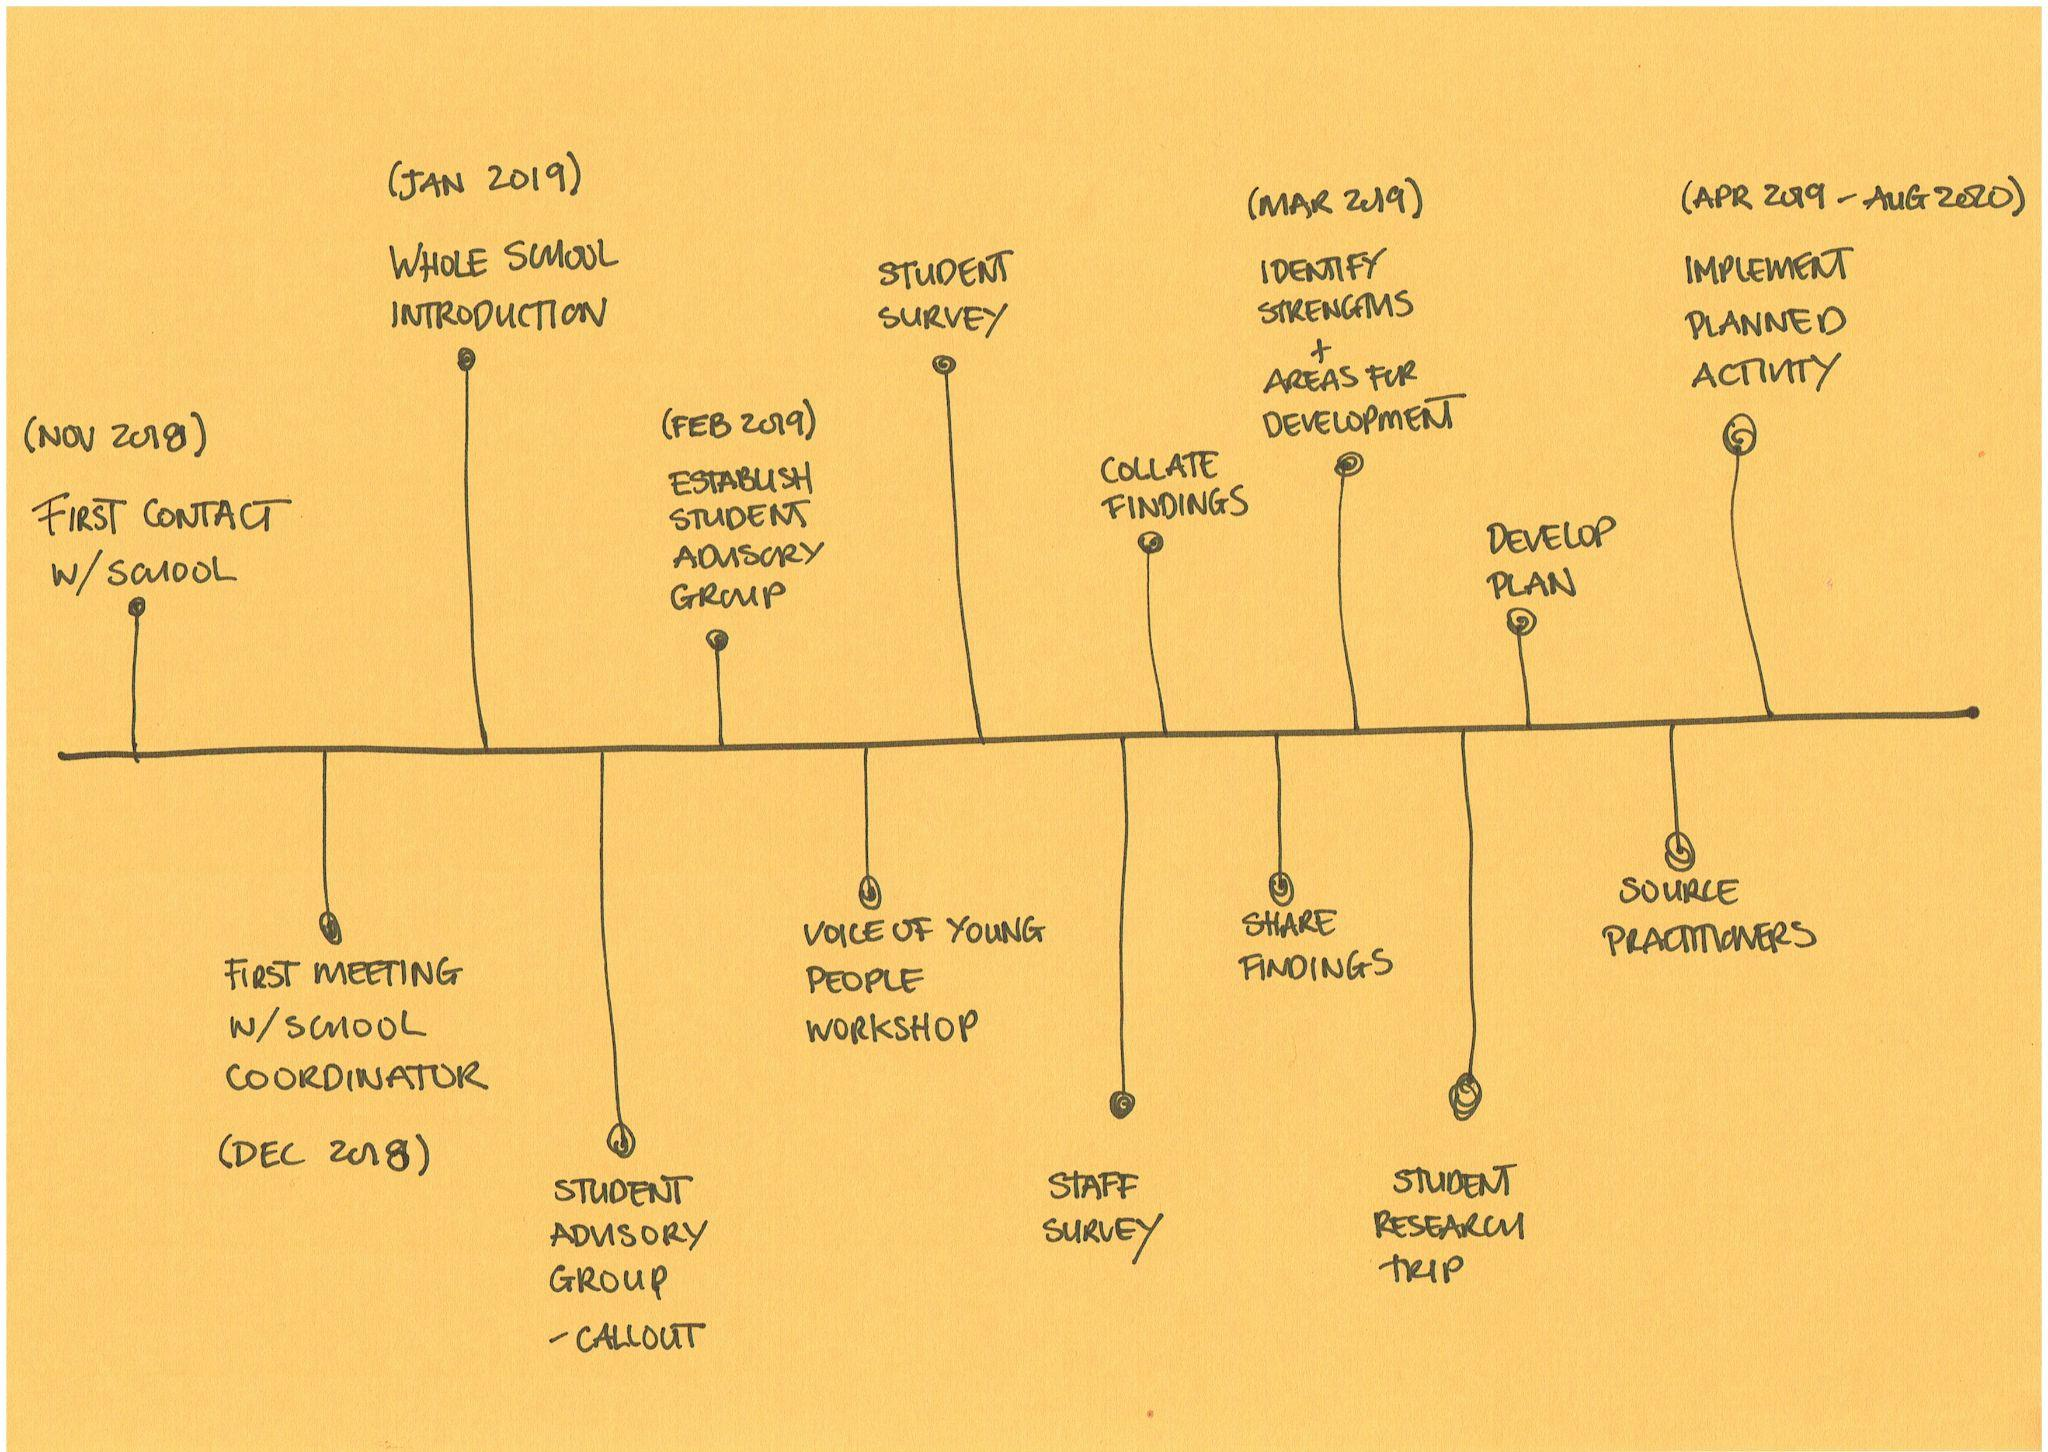 (NOV 2018)
FIRST CONTACT
W/ SCHOOL
FIRST MEETING
W/ SCHOOL
COORDINATOR
(DEC 2018)
(JAN 2019)
WHOLE SCHOOL
INTRODUCTION
STUDENT
ADVISORY
GROUP
- CALLOUT
(FEB 2019)
ESTABLISH
STUDENT
ADVISORY
GROUP
VOICE OF YOUNG
PEOPLE
WORKSHOP
STUDENT
SURVEY
STAFF
SURVEY
COLLATE
FINDINGS
SHARE
FINDINGS
(MAR 2019)
IDENTIFY
STRENGTHS
+
AREAS FOR
DEVELOPMENT
STUDENT
RESEARCH
TRIP
DEVELOP
PLAN
SOURCE
PRACTITIONERS
(APR 2019 - AUG 2020)
IMPLEMENT
PLANNED
ACTIVITY